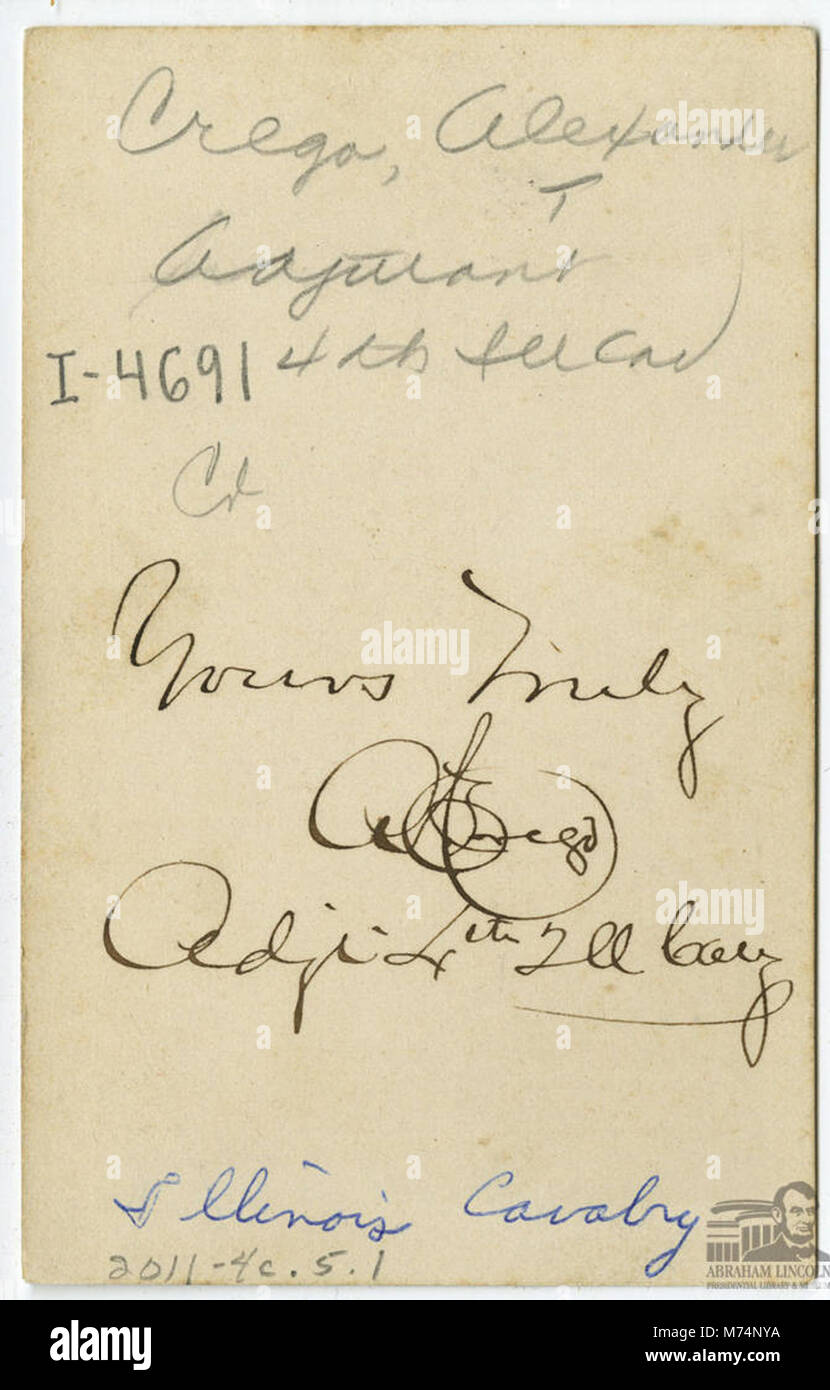 Crego, Alexander
T
Adjutant
I-4691 4th Ill Cav
Co
Yours Truly
A T Crego
Adjt 4th Ill Cavy
Illinois Cavalry
2011-4c.5.1
ABRAHAM LINCOLN
PRESIDENTIAL LIBRARY & MUSEUM
alamy
Image ID: M74NYA
www.alamy.com